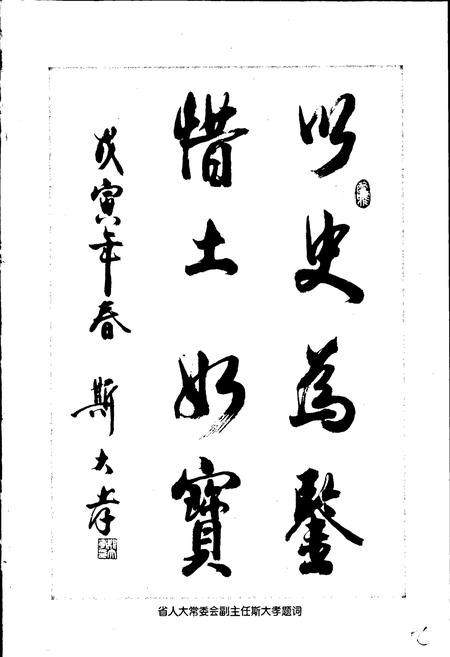 以史為鑒
惜土如寶
戊寅年春 斯大孝
省人大常委会副主任斯大孝题词